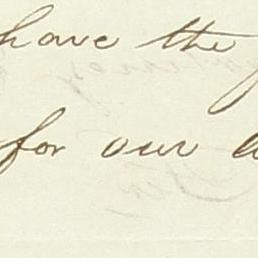 have the
for our